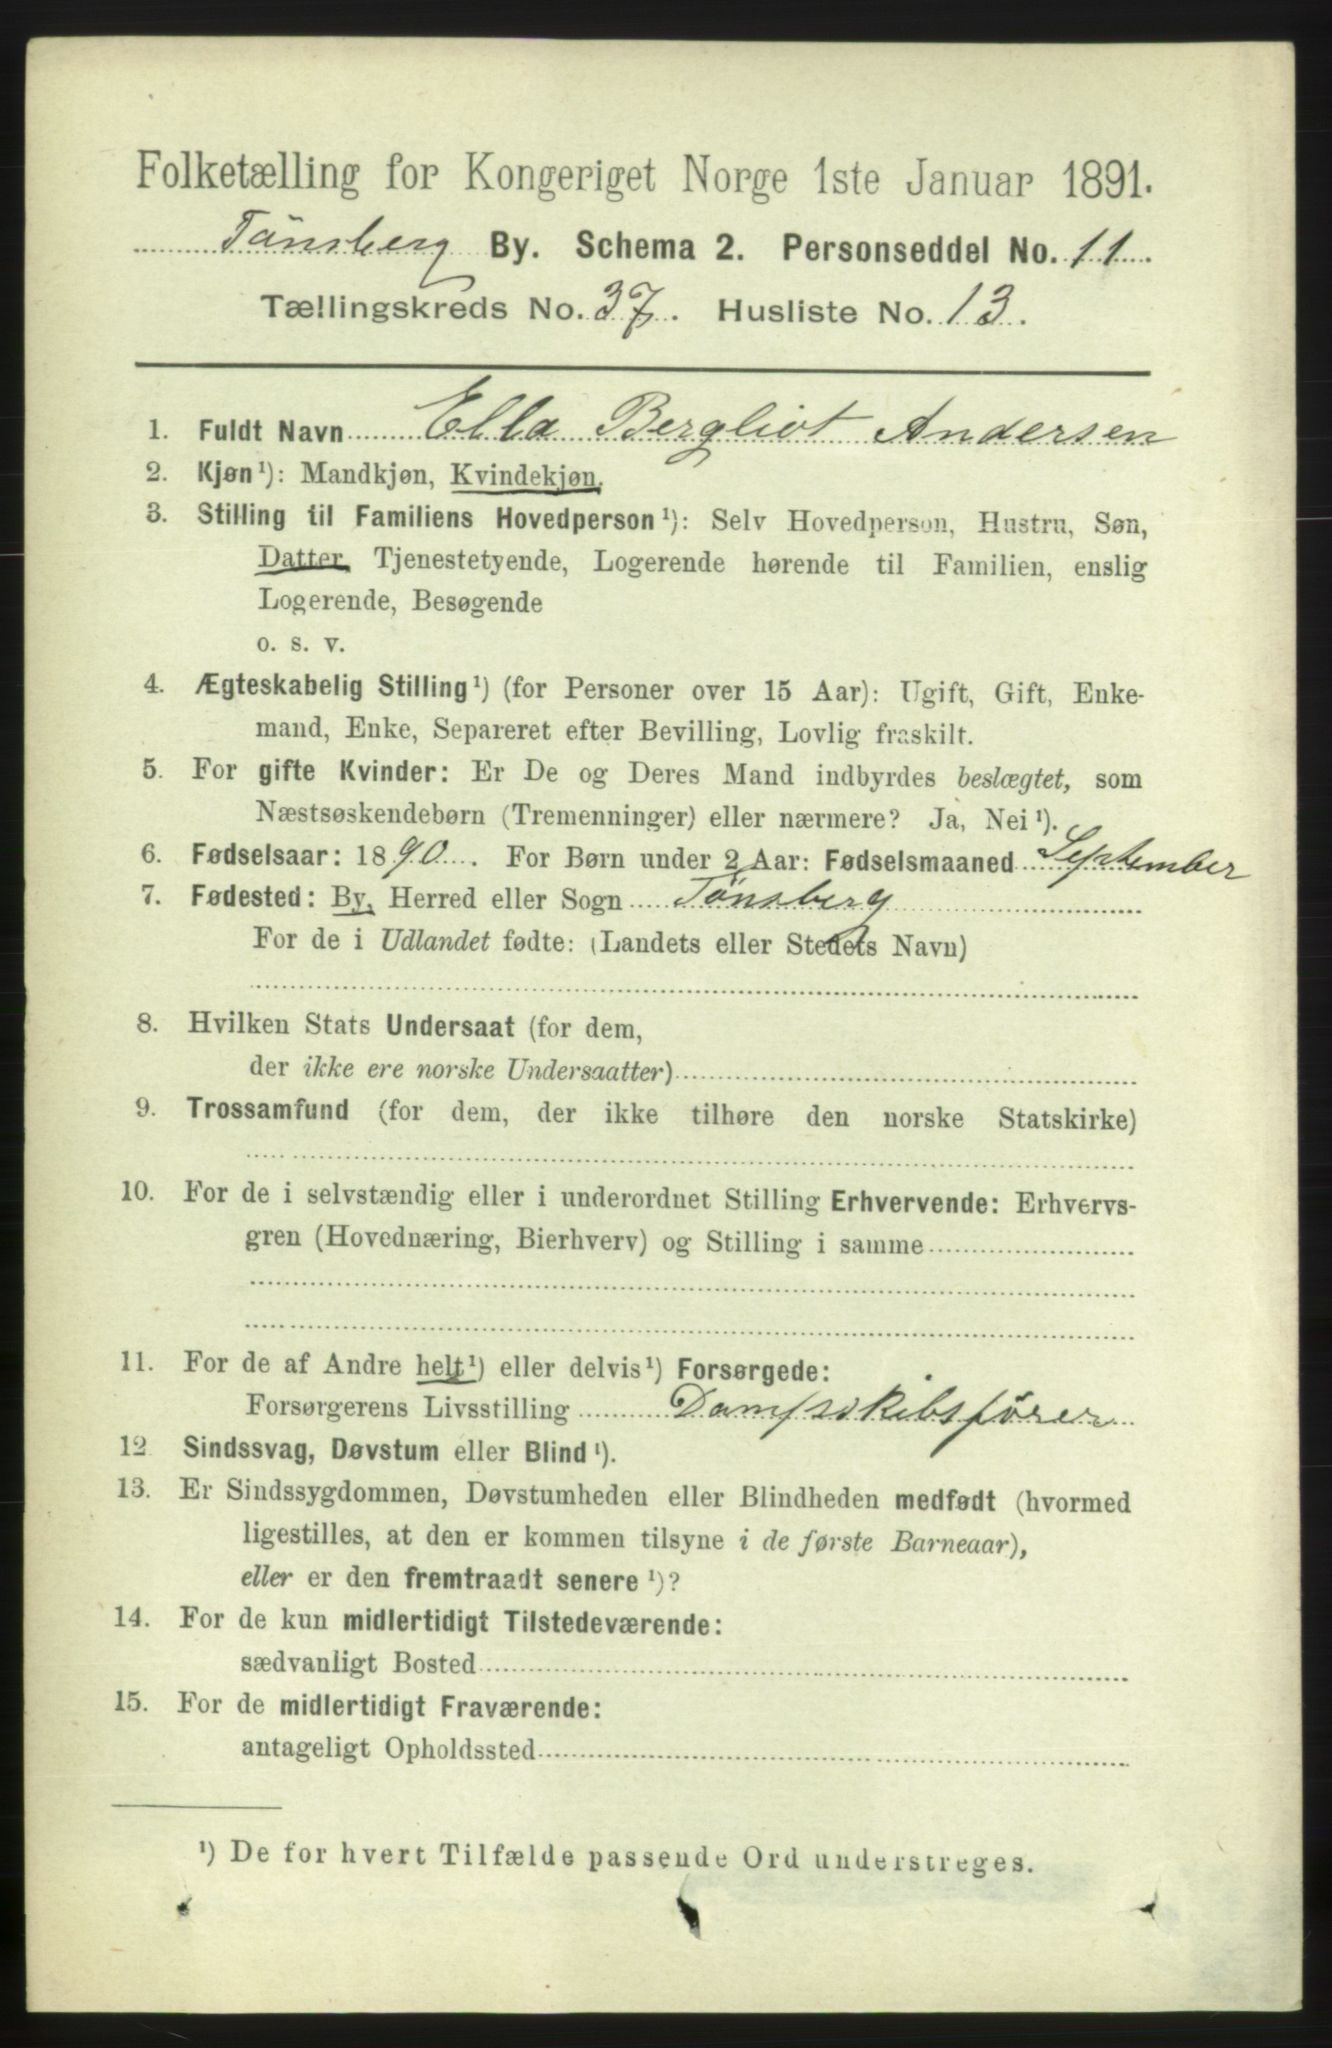 Folketælling for Kongeriget Norge 1ste Januar 1891.
Tönsberg By. Schema 2. Personseddel No. 11.
Tællingskreds No. 37. Husliste No. 13.
1. Fuldt Navn Ella Bergliot Andersen
2. Kjøn¹): Mandkjøn, Kvindekjøn.
3. Stilling til Familiens Hovedperson¹): Selv Hovedperson, Hustru, Søn,
Datter, Tjenestetyende, Logerende hørende til Familien, enslig
Logerende, Besøgende
o. s. v.
4. Ægteskabelig Stilling¹) (for Personer over 15 Aar): Ugift, Gift, Enke-
mand, Enke, Separeret efter Bevilling, Lovlig fraskilt.
5. For gifte Kvinder: Er De og Deres Mand indbyrdes beslægtet, som
Næstsøskendebørn (Tremenninger) eller nærmere? Ja, Nei¹).
6. Fødselsaar: 1890. For Børn under 2 Aar: Fødselsmaaned September
7. Fødested: By, Herred eller Sogn Tönsberg
For de i Udlandet fødte: (Landets eller Stedets Navn)
8. Hvilken Stats Undersaat (for dem,
der ikke ere norske Undersaatter)
9. Trossamfund (for dem, der ikke tilhøre den norske Statskirke)
10. For de i selvstændig eller i underordnet Stilling Erhvervende: Erhvervs-
gren (Hovednæring, Bierhverv) og Stilling i samme
11. For de af Andre helt¹) eller delvis¹) Forsørgede:
Forsørgerens Livsstilling Dampskibsförer
12. Sindssvag, Døvstum eller Blind¹).
13. Er Sindssygdommen, Døvstumheden eller Blindheden medfødt (hvormed
ligestilles, at den er kommen tilsyne i de første Barneaar),
eller er den fremtraadt senere¹)?
14. For de kun midlertidigt Tilstedeværende:
sædvanligt Bosted
15. For de midlertidigt Fraværende:
antageligt Opholdssted
¹) De for hvert Tilfælde passende Ord understreges.